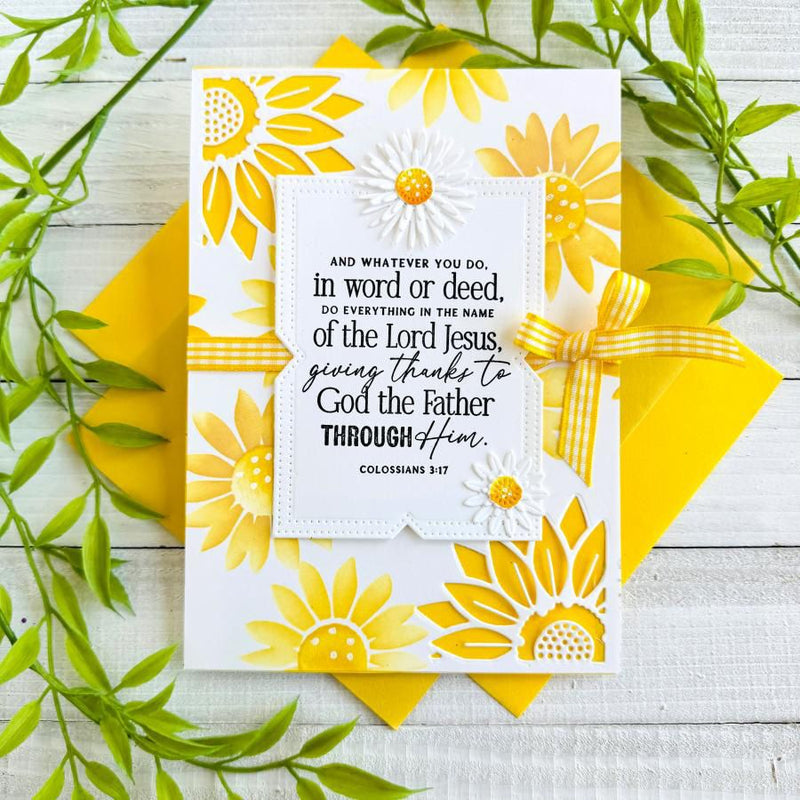 AND WHATEVER YOU DO,
in word or deed,
DO EVERYTHING IN THE NAME
of the Lord Jesus,
giving thanks to
God the Father
THROUGH Him.
COLOSSIANS 3:17